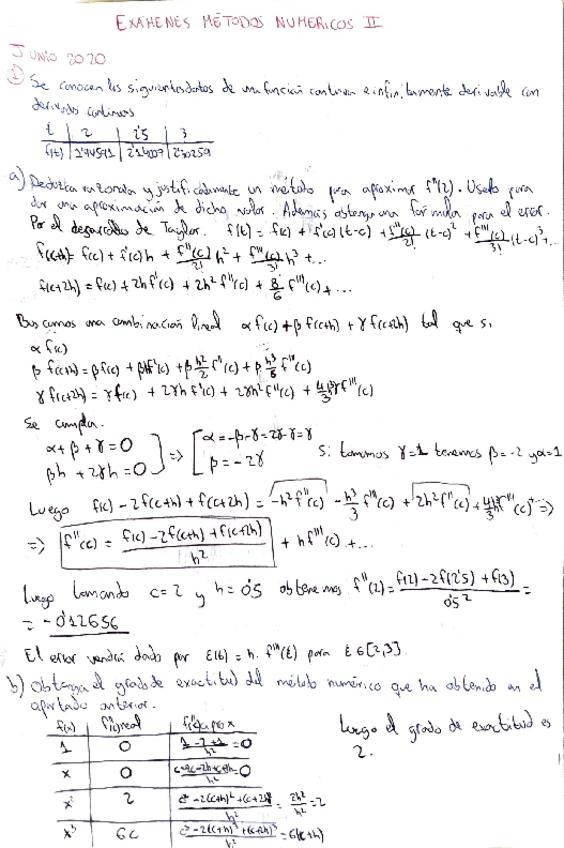 EXÁMENES MÉTODOS NUMERICOS II
JUNIO 2020
① Se conocen los siguientes datos de una función continua e infinitamente derivable con
derivadas continuas
t | 2 | 2'5 | 3
f(t) | 1'94591 | 2'14007 | 2'30259
a) Deduzca razonada y justificadamente un método para aproximar f''(2). Uselo para
dar una aproximación de dicho valor. Además obtenga una formula para el error.
Por el desarrollo de Taylor. f(t) = f(c) + f'(c)(t-c) + f''(c)/2! (t-c)² + f'''(c)/3! (t-c)³ + ...
f(c+h) = f(c) + f'(c)h + f''(c)/2! h² + f'''(c)/3! h³ + ...
f(c+2h) = f(c) + 2hf'(c) + 2h² f''(c) + 8/6 f'''(c) + ...
Buscamos una combinación lineal αf(c) + βf(c+h) + γf(c+2h) tal que si
αf(c)
βf(c+h) = βf(c) + βhf'(c) + β h²/2 f''(c) + β h³/6 f'''(c)
γf(c+2h) = γf(c) + 2γhf'(c) + 2γh² f''(c) + 4/3 h³γf'''(c)
Se cumpla.
α + β + γ = 0
βh + 2γh = 0 } => [ α = -β-γ = 2γ-γ = γ
β = -2γ
Si tomamos γ = 1 tenemos β = -2 y α = 1
Luego f(c) - 2f(c+h) + f(c+2h) = -h² f''(c) - h³/3 f'''(c) + 2h² f''(c) + 4/3 h³ f'''(c) + =>
=> f''(c) = f(c) - 2f(c+h) + f(c+2h) / h² + hf'''(c) + ...
Luego tomando c = 2 y h = 0'5 obtenemos f''(2) = f(2) - 2f(2'5) + f(3) / 0'5² =
= -0'12656
El error vendrá dado por ε(t) = h · f'''(t) para t ∈ [2,3]
b) Obtenga el grado de exactitud del método numérico que ha obtenido en el
apartado anterior.
f(x) | f''(c) real | f''(c) aprox
1 | 0 | 1-2+1/h² = 0
x | 0 | c-2c-2h+c+2h/h² = 0
x² | 2 | c²-2(c+h)²+(c+2h)²/h² = 2h²/h² = 2
x³ | 6c | c³-2(c+h)³+(c+2h)³/h² = 6(c+h)
Luego el grado de exactitud es
2.